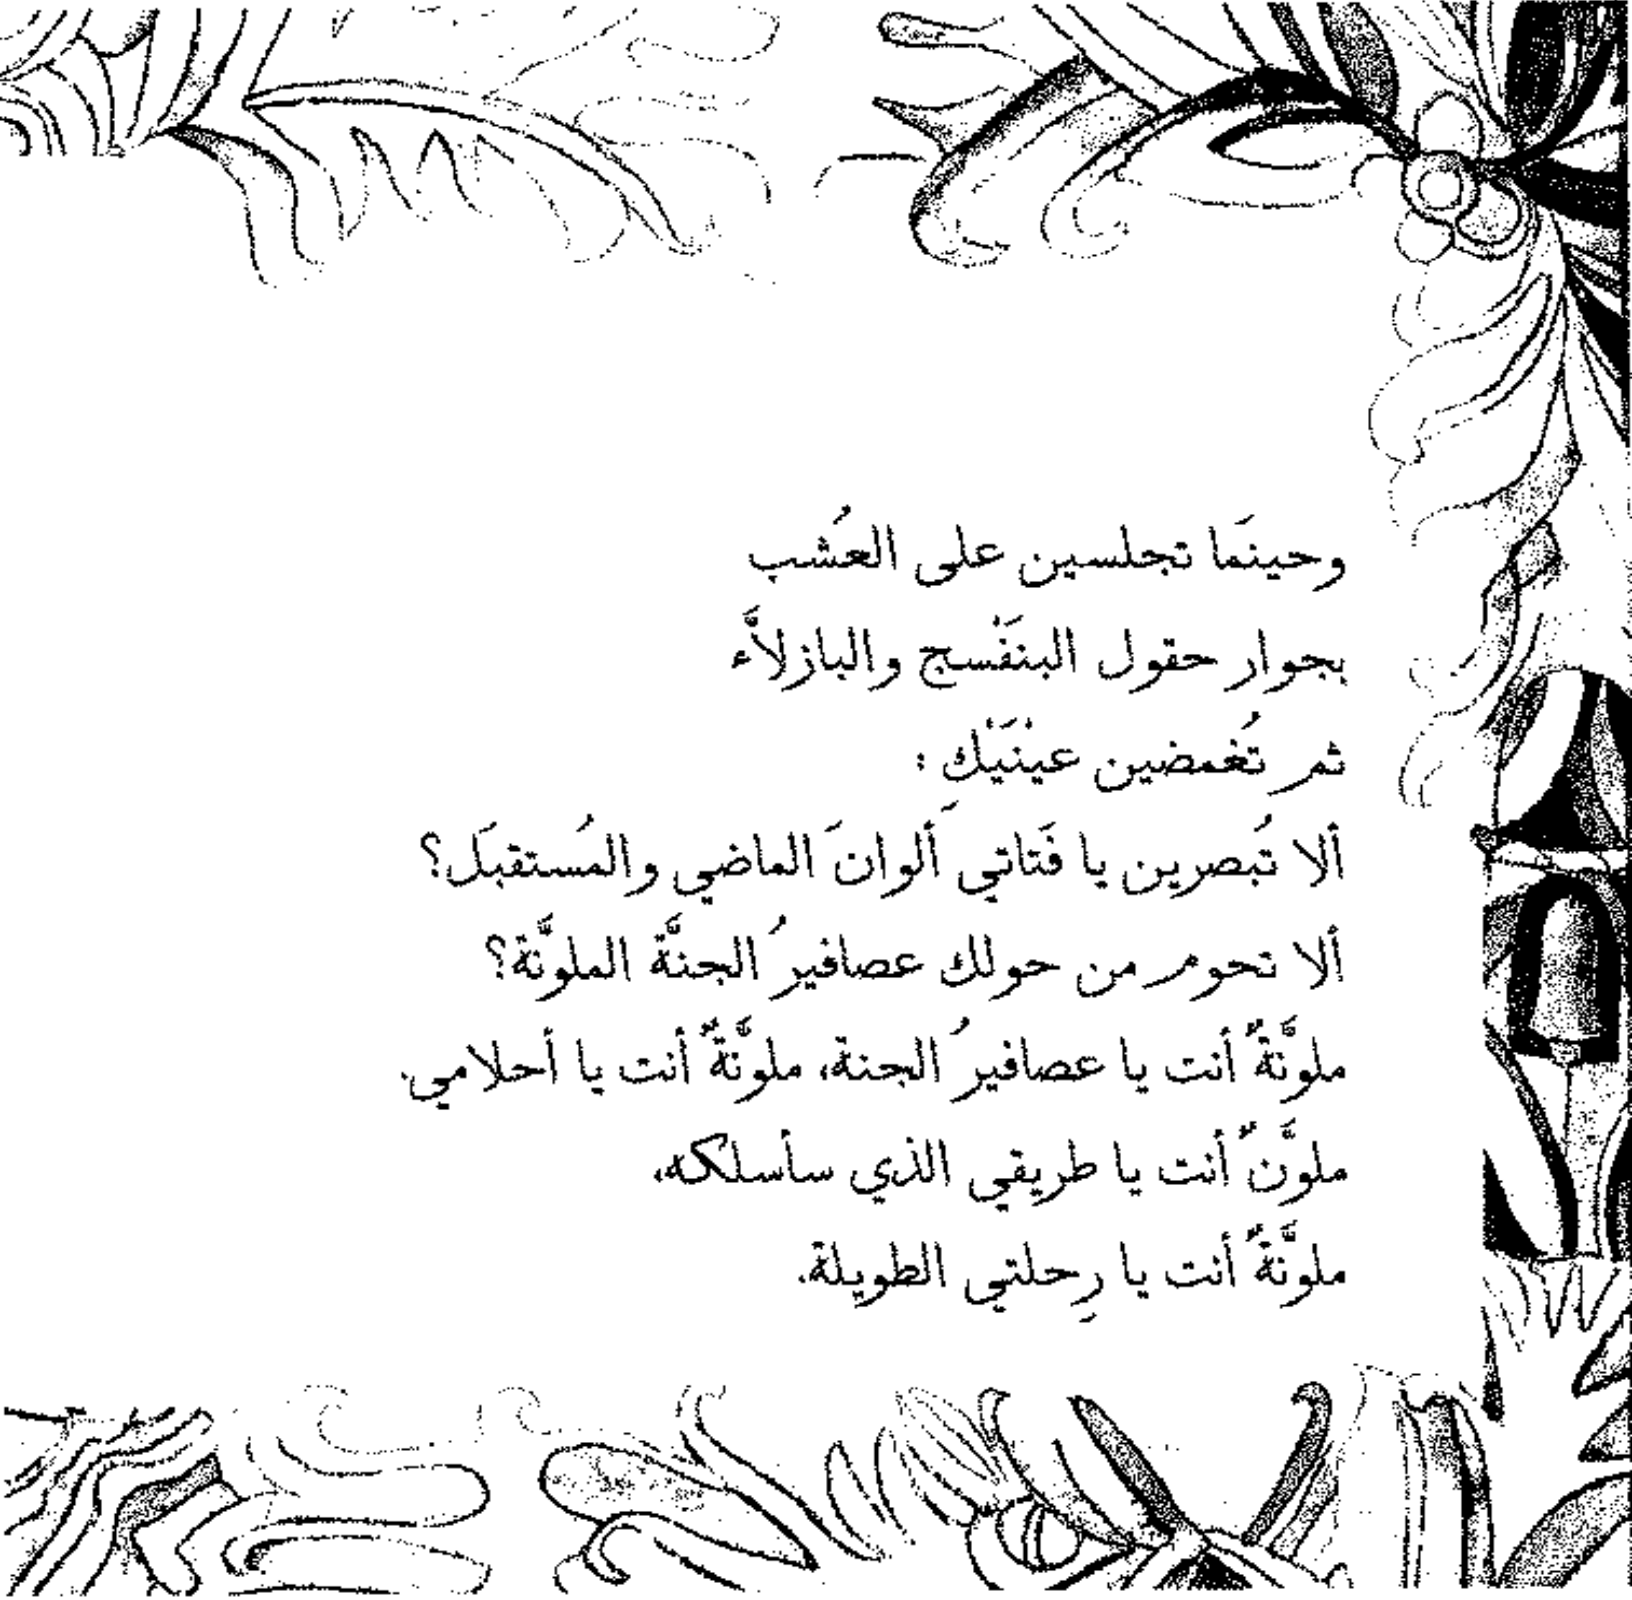 وحينَما تجلسين على العُشب
بجوار حقول البنَفْسج والبازلاَّء
ثم تُغمضين عيْنَيْكِ :
ألا تُبصرين يا فَتاتي َألوانَ الماضي والمُستقبَل؟
ألا تحوم من حولك عصافيرُ الجنَّة الملونَّة؟
ملونَّةٌ أنت يا عصافيرُ الجنة، ملونَّةٌ أنت يا أحلامي.
ملوَّنٌ أنت يا طريقي الذي سأسلكه،
ملونَّةٌ أنت يا رِحلتي الطويلة.